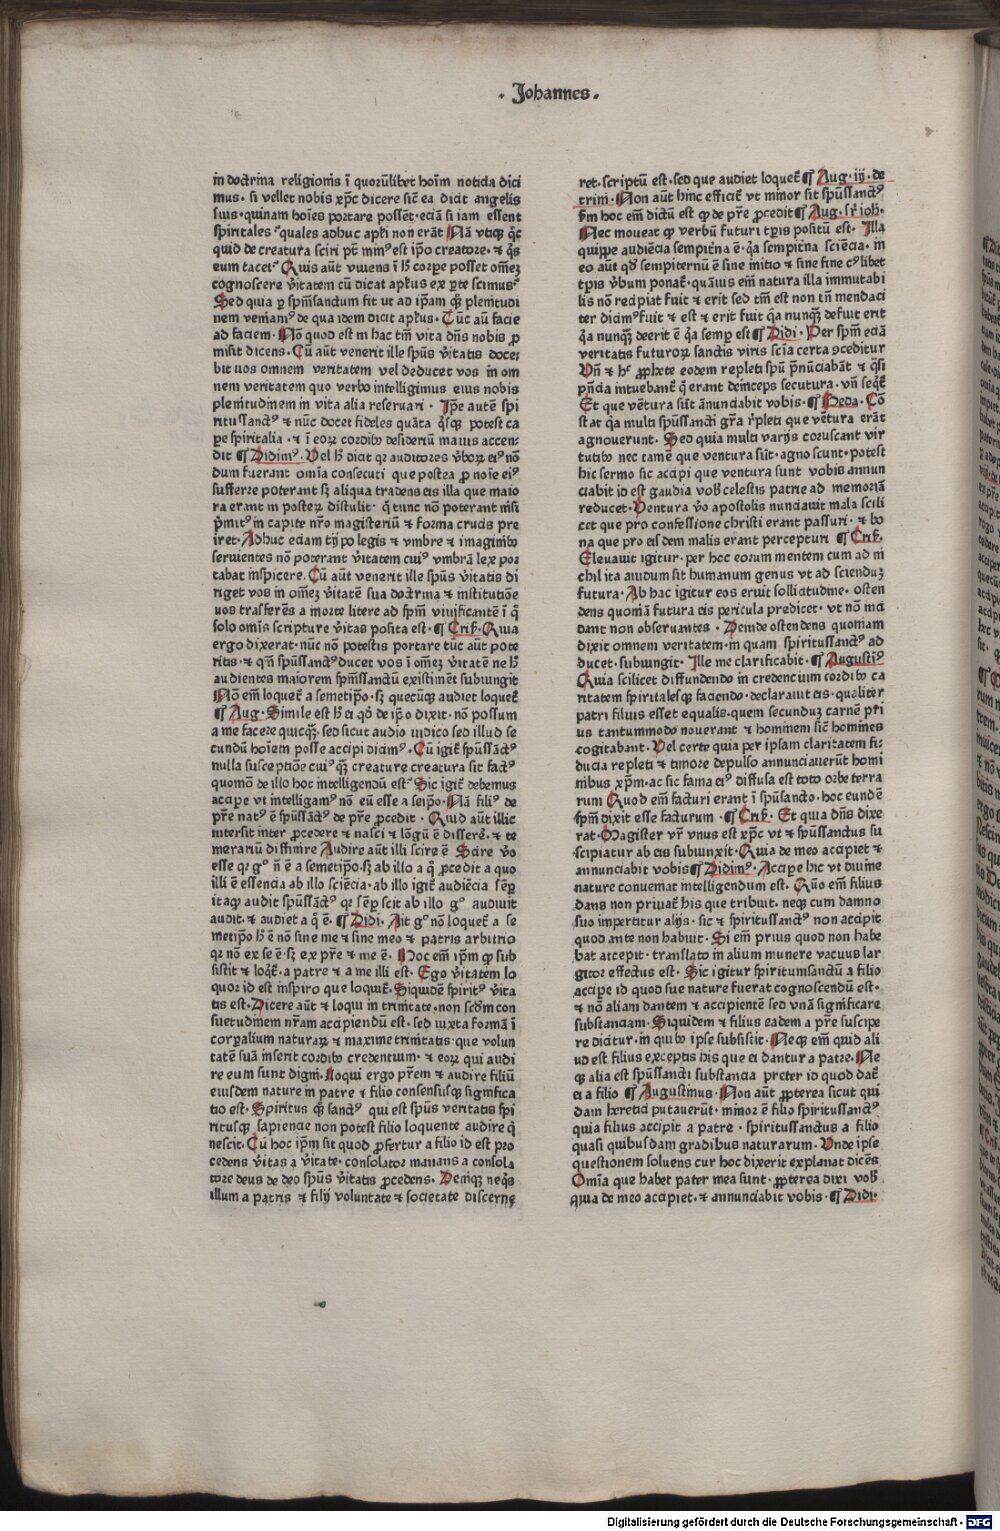 . Johannes .
in doctrina religionis ī quorūlibet hoīm noticia dici
mus. si vellet nobis xp̄c dicere sicē ea dicit angelis
suis. quinam hoīes portare possēt. eciā si iam essent
spiritales ꝰquales adhuc apl̄i non erāt Nā vtiqꝫ q̄c
quid de creatura sciri pt̄ minꝰ est ip̄o creatore. ⁊ q̄s
eum tacetꝰ Quis aūt viuens ī h̄ corpe posset om̄eꝫ
cognoscere v̄itatem cū dicat apl̄us ex ꝑte scimusꝰ
Sed quia ꝑ spm̄sanctum fit ut ad ip̄am qꝫ plenitudi
nem veniamꝰ de qua idem dicit apl̄us. Tūc aū facie
ad faciem. Nō quod est in hac tm̄ vita dn̄s nobis ꝓ
misit dicens. Cū aūt venerit ille spūs v̄itatis doceꝛ
bit uos omnem veritatem vel deducet vos in om
nem veritatem quo verbo intelligimus eius nobis
plenitudinem in vita alia reseruari. Ip̄e autē spi
ritussanctꝰ ⁊ nūc docet fideles quāta q̄sqꝫ potest ca
ꝑe spiritalia. ⁊ ī eoꝝ cordibꝰ desideriū maius accen
dit ¶ Didimꝰ. Vel h̄ dicit qꝛ auditores v̄boꝝ eiꝰ nō
dum fuerant omīa consecuti que postea ꝓ noīe eiꝰ
sufferre poterant sꝫ aliqua tradens eis illa que maio
ra erant in posteꝝ distulit. q̄ tunc nō poterant nisi
p̄mitꝰ in capite nr̄o magisteriū ⁊ forma crucis pre
iret. Adhuc eciam typo legis ⁊ vmbre ⁊ imaginibꝰ
seruientes nō poterant v̄itatem cuiꝰ vmbrā lex por
tabat inspicere. Cū aūt venerit ille spūs v̄itatis di
riget vos in om̄eꝫ v̄itatē sua doctrina ⁊ institutiōe
uos trāsferēs a morte litere ad spm̄ viuificantē ī q̄
solo om̄is scripture v̄itas posita est. ¶ Criſ. Quia
ergo dixerat. nūc nō potestis portare tūc aūt pote
ritis. ⁊ qm̄ spūssanctꝰ ducet vos ī om̄eꝫ v̄itatē ne h̄
audientes maiorem spm̄ssanctū existimēt subiungit
Nō em̄ loquet̄ a semetip̄o. sꝫ quecūqꝫ audiet loquet̄
¶ Aug. Simile est h̄ ei qd̓ de ip̄o dixit. nō possum
a me facere quicqꝫ. sed sicut audio iudico sed illud se
cundū hoīem posse accipi dicimꝰ. Cū igit̄ spūssāctꝰ
nulla susceptiōe cuiꝰ qꝫ creature creatura sit factꝰ
quomō de illo hoc intelligendū estꝰ Sic igit̄ debemus
accipe vt intelligamꝰ nō eū esse a seip̄o. Nā filiꝰ de
pr̄e natꝰ ē spūssāctꝰ de pr̄e ꝓcedit. Quid aūt illic
intersit inter ꝓcedere ⁊ nasci ⁊ lōgū ē disserē. ⁊ te
merariū diffinire Audire aūt illi scire ē Scire v̄o
esse qꝛ gͦ n̄ ē a semetip̄o. sꝫ ab illo a q̄ ꝓcedit a quo
illi ē essencia ab illo sciēcia. ab illo igit̄ audiēcia sēꝑ
itaqꝫ audit spūssāctꝰ qꝛ sēꝑ scit ab illo gͦ audiuit
audit. ⁊ audiet a q̄ ē. ¶ Didi. Ait gͦ nō loquet̄ a se
metip̄o h̄ ē nō sine me ⁊ sine meo ⁊ patris arbitrio
qꝛ nō ex se ē. sꝫ ex pr̄e ⁊ me ē. Hoc em̄ ip̄m ꝙ sub
sistit ⁊ loq̄t̄. a patre ⁊ a me illi est. Ego v̄itatem lo
quoꝛ id est inspiro que loquit̄. Siquidē spiritꝰ v̄ita
tis est. Dicere aūt ⁊ loqui in trinitate. non scd̓m con
suetudinem nr̄am accipiendū est. sed iuxta formā ī
corꝑalium naturaꝝ ⁊ maxime trinitatis. que volun
tatē suā inserit cordibꝰ credentium. ⁊ eoꝝ qui audi
re eum sunt digni. Loqui ergo pr̄em ⁊ audire filiū
eiusdem nature in patre ⁊ filio consensusqꝫ significa
tio est. Spiritus qꝫ sanctꝰ qui est spūs veritatis spi
ritusqꝫ sapiencie non potest filio loquente audire q̄
nescit. Cū hoc ip̄m sit quod ꝓfertur a filio id est pro
cedens v̄itas a v̄itate. consolator manans a consola
tore deus de deo spūs v̄itatis ꝓcedens. Deniqꝫ neq̄s
illum a patris ⁊ filij voluntate ⁊ societate discerne
ret. scriptū est. sed que audiet loquet̄ ¶ Aug. iij. de
trini. Non aūt hinc efficit̄ vt minor sit spūssanctꝰ
s̄m hoc em̄ dictū est ꝙ de pr̄e ꝓcedit ¶ Aug. sꝛ̄ ioh̄.
Nec moueat ꝙ verbū futuri tꝑis positū est. Illa
quippe audiēcia sempit̄na ē. q̇a sempit̄na sciēcia. in
eo aūt qd̓ sempiternū ē sine initio ⁊ sine fine cꝰlibet
tꝑis v̄bum ponat̄. quāuis em̄ natura illa immutabi
lis nō recipiat fuit ⁊ erit sed tm̄ est non tn̄ mendaci
ter dicimꝰ fuit ⁊ est ⁊ erit fuit q̇a nunqꝫ defuit erit
q̇a nunqꝫ deerit ē q̇a semꝑ est ¶ Didi. Per spm̄ eciā
veritatis futuroꝝ sanctis viris scīa certa ꝯceditur
Vn̄ ⁊ hͦ ꝓphete eodem repleti spū p̄nūciabāt ⁊ q̄si
p̄ncia intuebant̄ q̄ erant deinceps secutura. vn̄ seq̄t̄
Et que vētura sūt ānunciabit vobis. ¶ Beda. Cō
stat q̇a multi spūssancti gr̄a r̄pleti que vētura erāt
agnouerunt. Sed quia multi varijs coruscant vir
tutibꝰ nec tamē que ventura sūt. agnoscunt. potest
hic sermo sic accipi que ventura sunt vobis annun
ciabit id est gaudia vob̄ celestis patrie ad memoriā
reducet. Ventura v̄o apostolis nunciauit mala scili
cet que pro confessione christi erant passuri. ⁊ bo
na que pro eisdem malis erant percepturi ¶ Criſ.
Eleuauit igitur. per hoc eorum mentem cum ad ni
chil ita auidum sit humanum genus vt ad scienduꝫ
futura. Ab hac igitur eos eruit sollicitudine. osten
dens quoniā futura eis pericula predicet. vt nō inci
dant non obseruantes. Deinde ostendens quoniam
dixit omnem veritatem. in quam spiritussanctꝰ ad
ducet. subiungit. Ille me clarificabit. ¶ Augustiꝰ
Quia scilicet diffundendo in credencium cordibꝰ ca
ritatem spiritalesqꝫ faciendo. declarauit eis. qualiter
patri filius esset equalis. quem secunduꝫ carnē pri
us tantummodo nouerant ⁊ hominem sic̄ homines
cogitabant. Vel certe quia per ipsam claritatem fi
ducia repleti ⁊ timore depulso annunciauerūt homi
nibus xp̄m. ac sic fama eiꝰ diffusa est toto orbe terra
rum Quod em̄ facturi erant ī spūsancto. hoc eundē
spm̄ dixit esse facturum. ¶ Criſ. Et quia dn̄s dixe
rat. Magister vr̄ vnus est xp̄c vt ⁊ spūssanctus su
scipiatur ab eis subiunxit. Quia de meo accipiet ⁊
annunciabit vobis ¶ Didimꝰ. Accipe hic vt diuine
nature conueniat intelligendum est. Quō em̄ filius
dans non priuat̄ his que tribuit. neqꝫ cum damno
suo impertitur alijs. sic ⁊ spiritussanctꝰ non accipit
quod ante non habuit. Si em̄ prius quod non habe
bat accepit. translato in alium munere vacuus lar
gitor effectus est. Sic igitur spiritumsanctū a filio
accipe id quod sue nature fuerat cognoscendū est.
⁊ nō aliam dantem ⁊ accipientē sed vnā significare
substanciam. Siquidem ⁊ filius eadem a pr̄e suscipe
re dicitur. in quibꝰ ipse subsistit. Neqꝫ em̄ quid ali
ud est filius exceptis his que ei dantur a patre. Ne
qꝫ alia est spūssancti substancia preter id quod dat̄
ei a filio ¶ Augustinus. Non aūt ꝓpterea sicut qui
dam heretici putauerūt. minoꝛ ē filio spiritussanctꝰ
quia filius accipit a patre. spiritussanctus a filio
quasi quibusdam gradibus naturarum. Vnde ipse
questionem soluens cur hoc dixerit explanat dicēs
Omīa que habet pater mea sunt. ꝓpterea dixi vob̄
quia de meo accipiet. ⁊ annunciabit vobis. ¶ Didi.
Digitalisierung gefördert durch die Deutsche Forschungsgemeinschaft - DFG